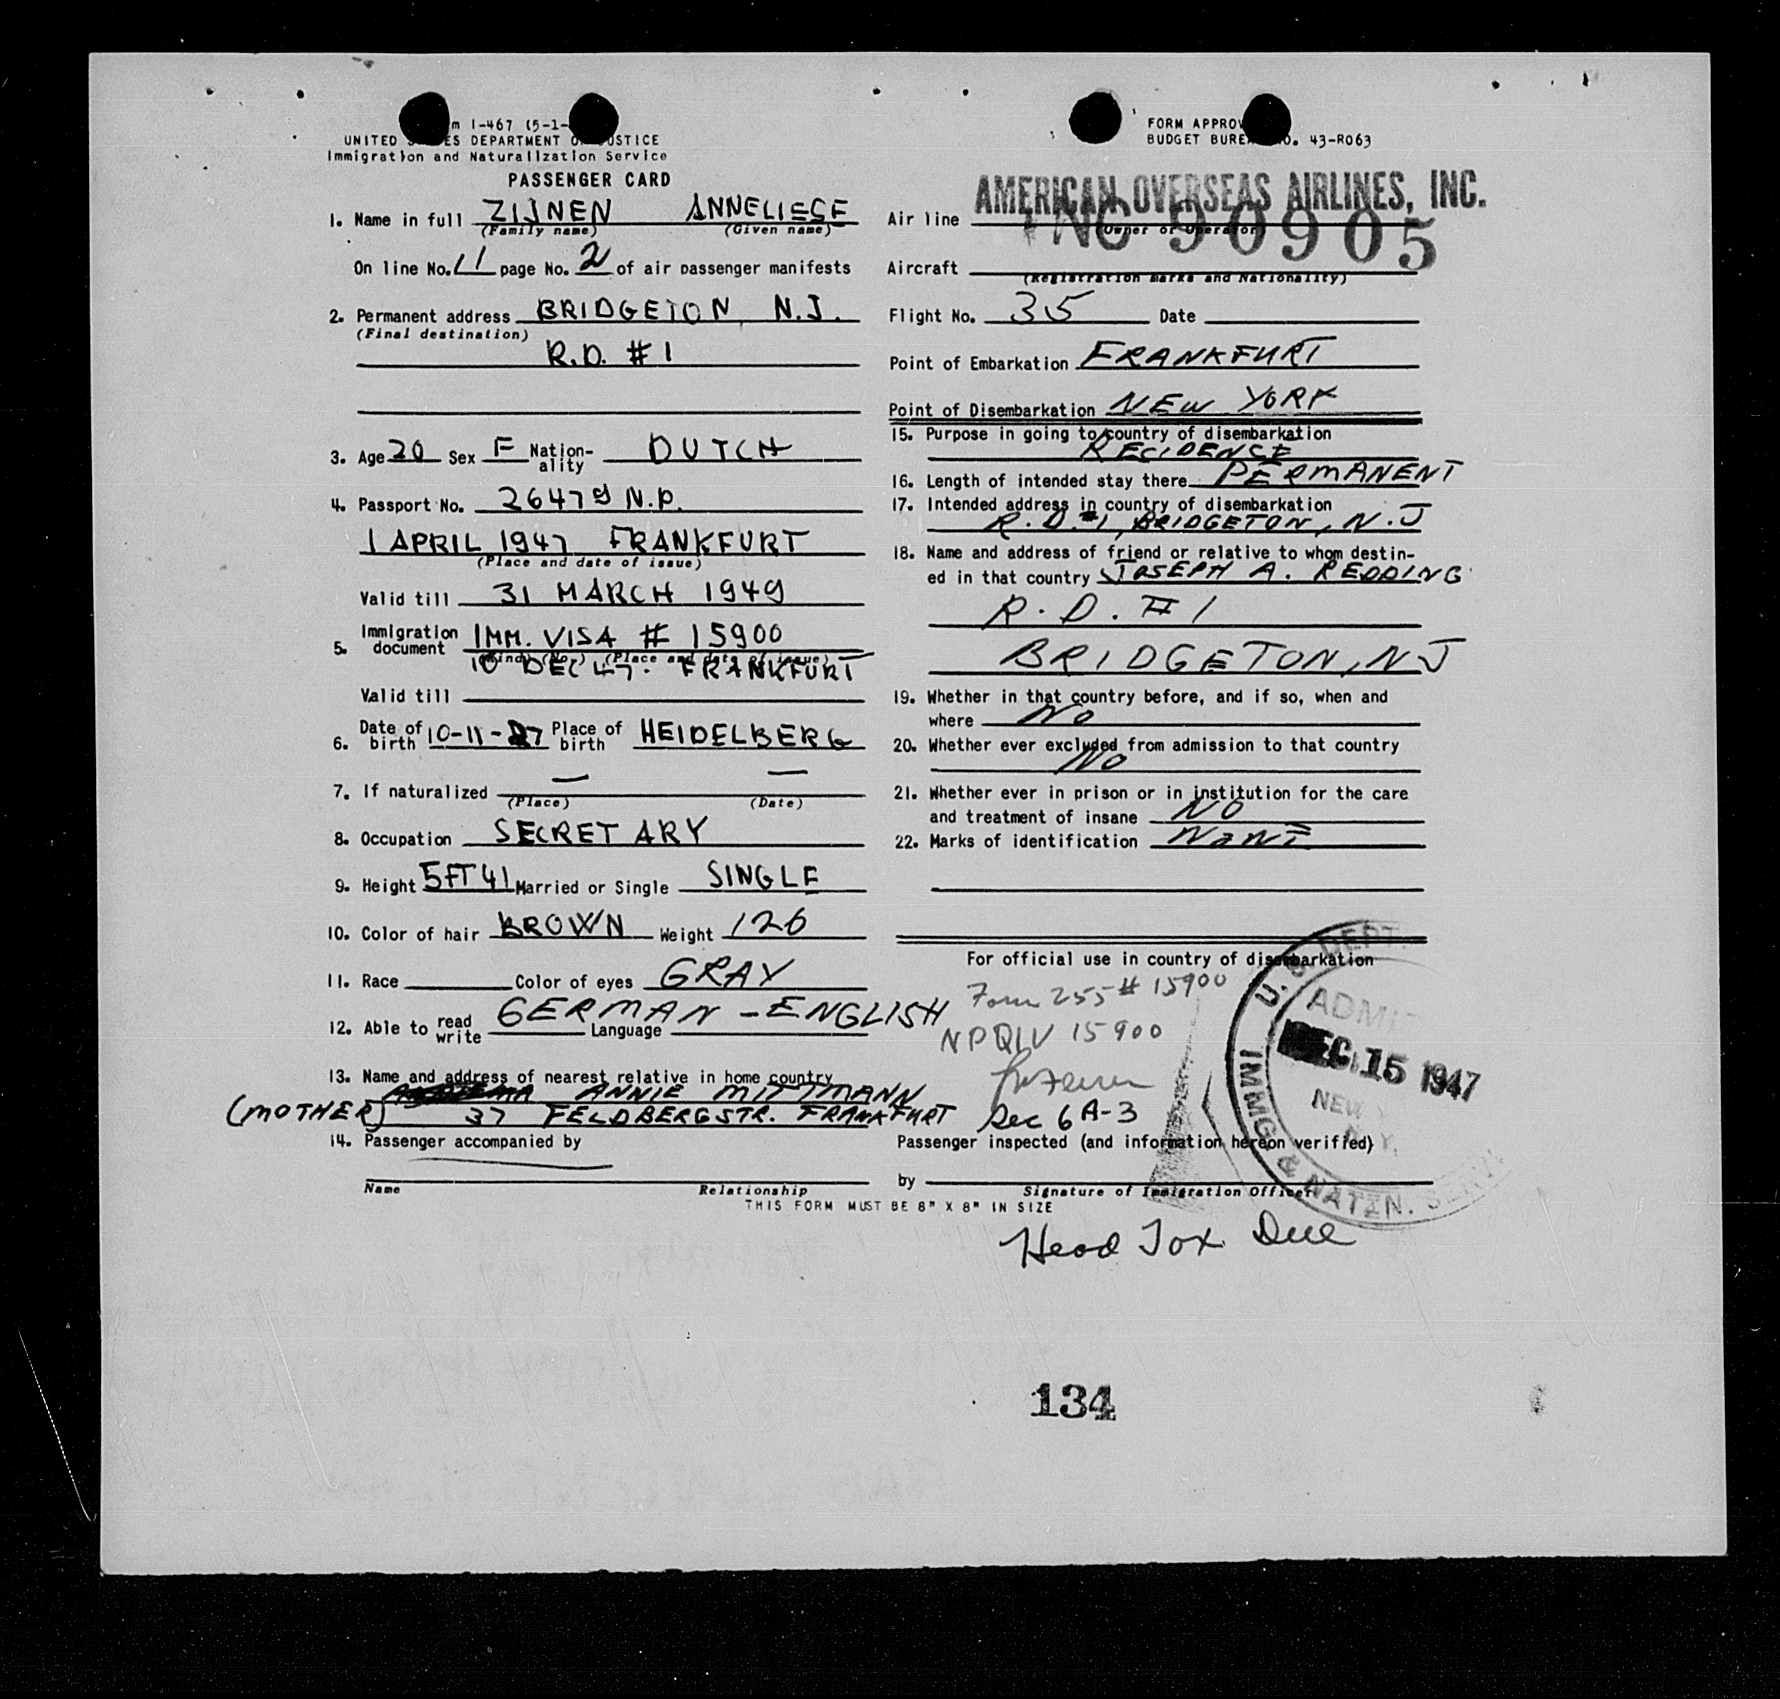 m I-467 (5-1-
UNITED S ES DEPARTMENT O USTICE
Immigration and Naturalization Service
PASSENGER CARD
FORM APPROV
BUDGET BUREA NO. 43-R063
1. Name in full ZIJNEN ANNELIESE
(Family name) (Given name)
On line No. 11 page No. 2 of air passenger manifests
2. Permanent address BRIDGETON, N.J.
(Final destination)
R.D. #1
3. Age 20 Sex F Nation-ality DUTCH
4. Passport No. 26479 N.P.
1 APRIL 1947 FRANKFURT
(Place and date of issue)
Valid till 31 MARCH 1949
5. Immigration document IMM. VISA # 15900
(Kind) (No.) (Place and date of issue)
10 DEC 47. FRANKFURT
Valid till
6. Date of birth 10-11-27 Place of birth HEIDELBERG
7. If naturalized — —
(Place) (Date)
8. Occupation SECRETARY
9. Height 5FT 41 Married or Single SINGLE
10. Color of hair BROWN Weight 126
11. Race Color of eyes GRAY
12. Able to read write GERMAN - ENGLISH
Language
13. Name and address of nearest relative in home country
ANNIE MITTMANN
(MOTHER) 37 FELDBERGSTR. FRANKFURT
14. Passenger accompanied by
Name Relationship
THIS FORM MUST BE 8" X 8" IN SIZE
Air line AMERICAN OVERSEAS AIRLINES, INC.
(Owner or Operator)
NC 90905
Aircraft
(Registration marks and Nationality)
Flight No. 35 Date
Point of Embarkation FRANKFURT
Point of Disembarkation NEW YORK
15. Purpose in going to country of disembarkation
RECIDENCE
16. Length of intended stay there PERMANENT
17. Intended address in country of disembarkation
R.D. #1, BRIDGETON, N.J
18. Name and address of friend or relative to whom destin-
ed in that country JOSEPH A. REDDING
R.D. #1
BRIDGETON, NJ
19. Whether in that country before, and if so, when and
where NO
20. Whether ever excluded from admission to that country
NO
21. Whether ever in prison or in institution for the care
and treatment of insane NO
22. Marks of identification NONE
For official use in country of disembarkation
Form 255 # 15900
NPQIV 15900
Sec 6 A-3
U. S. DEPT.
ADMI
DEC 15 1947
NEW Y
N.Y.
IMMG. & NATZN. SERV
Passenger inspected (and information hereon verified)
by
Signature of Immigration Officer
Head Tax Due
134